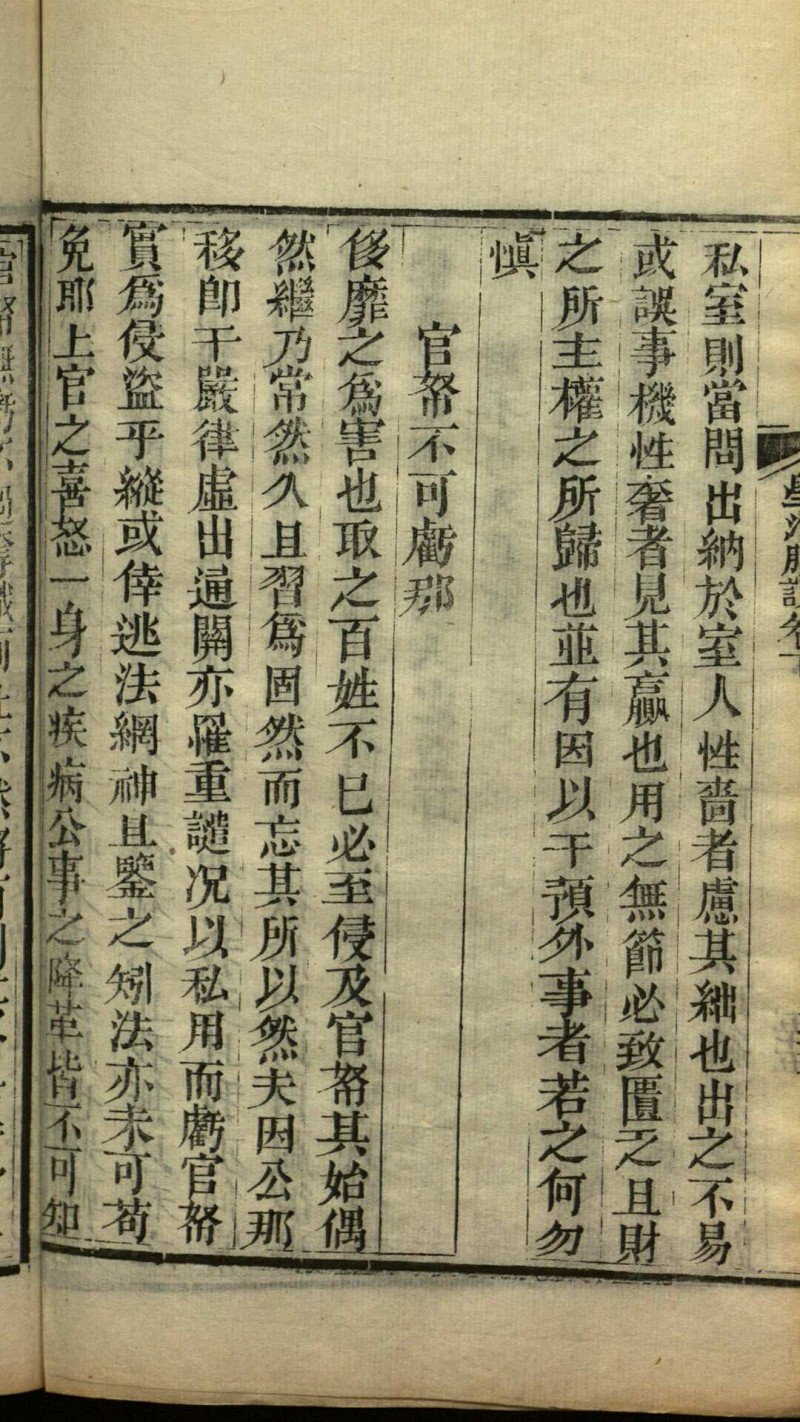 私室則當問出納於室人性嗇者慮其絀也出之不易
或誤事機性奢者見其贏也用之無節必致匱乏且財
之所主權之所歸也並有因以干預外事者若之何勿
慎
官帑不可虧那
侈靡之爲害也取之百姓不已必至侵及官帑其始偶
然繼乃常然久且習爲固然而忘其所以然夫因公那
移卽干嚴律虛出通關亦罹重譴况以私用而虧官帑
實爲侵盜乎縱或倖逃法網神且鑒之矧法亦未可苟
免耶上官之喜怒一身之疾病公事之降革皆不可知